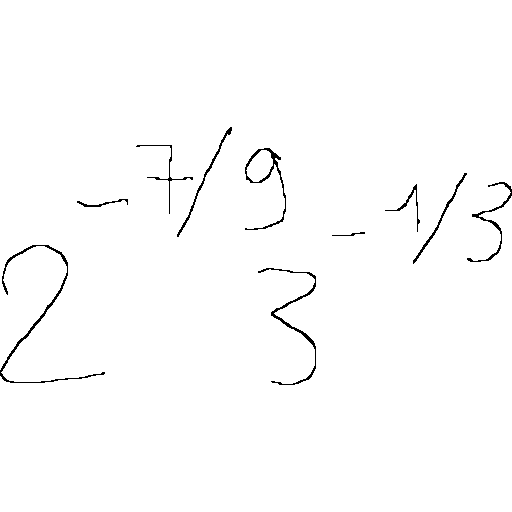 2^{-7/9} 3^{-1/3}